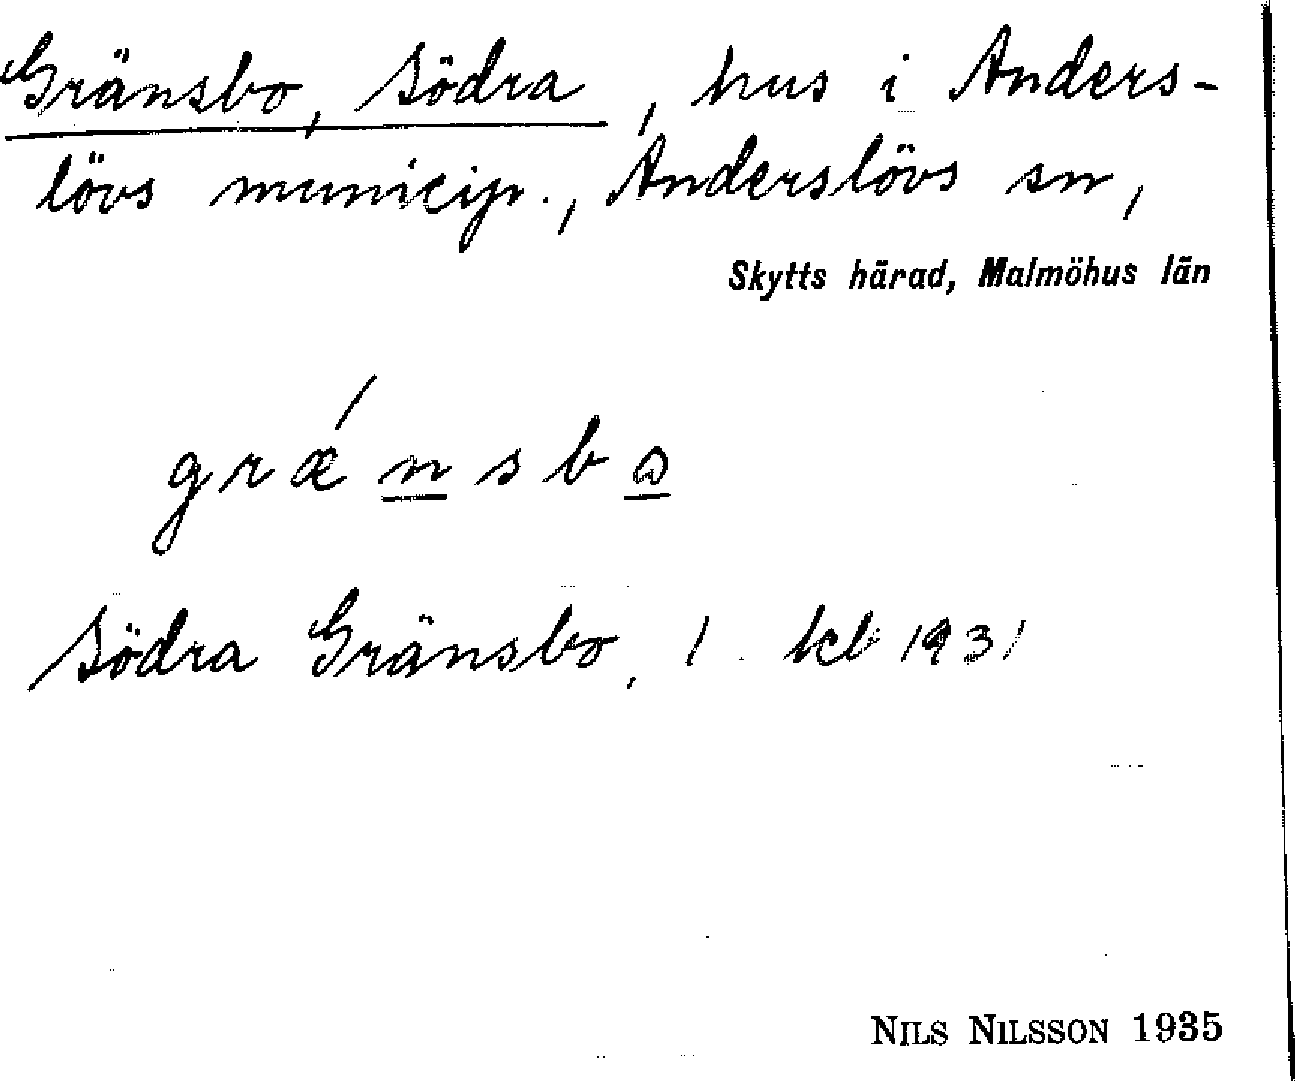 Gränsbo, Södra, hus i Anders-
lövs municip., Anderslövs sn,
Skytts härad, Malmöhus län
grǽnsbo
Södra Gränsbo, 1. kcb 1931
NILS NILSSON 1935